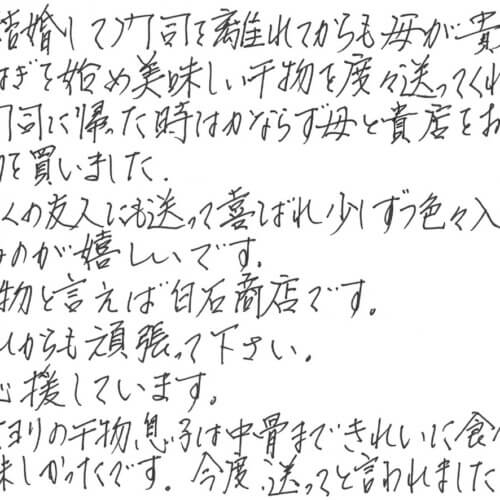 結婚して門司を離れてからも母が貴
はぎを始め美味しい干物を度々送ってくれ
門司に帰った時はかならず母と貴店をお
を買いました.
くの友人にも送って喜ばれ少しずつ色々入
のが嬉しいです.
物と言えば白石商店です。
からも頑張って下さい.
応援しています。
の干物,息子は中骨まできれいに食べ
味しかったです。今度、送ってと言われました